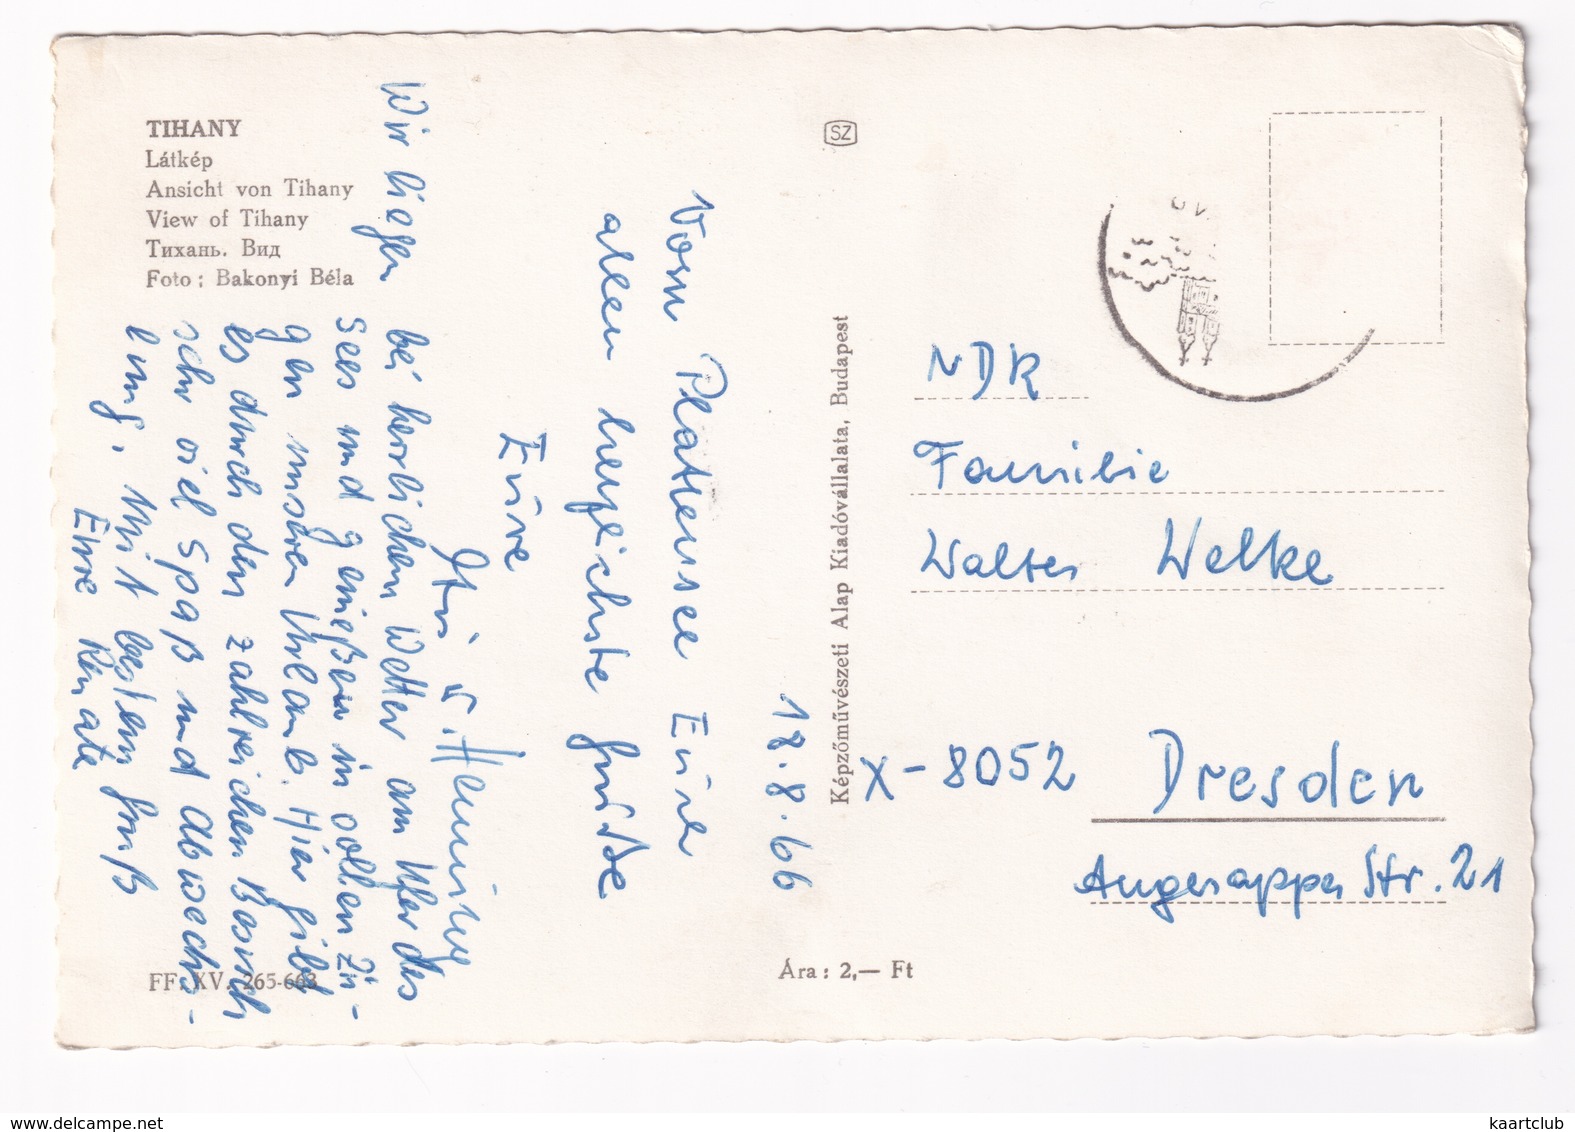 TIHANY
Látkép
Ansicht von Tihany
View of Tihany
Тихань. Вид
Foto : Bakonyi Béla
SZ
Képzőművészeti Alap Kiadóvállalata, Budapest
FF. XV. 265-663
Ára : 2,— Ft
18.8.66
Vom Plattensee Euch
allen herzlichste Grüße
Eure
Henning
Wir liegen bei herrlichem Wetter am Ufer des
Sees und genießen in vollen Zü-
gen unseren Urlaub. Hier gibt
es durch den zahlreichen Besuch
sehr viel Spaß und Abwechs-
lung. Mit bestem Gruß
Eure Renate
NDR
Familie
Walter Welke
X-8052 Dresden
Str. 21
kaartclub